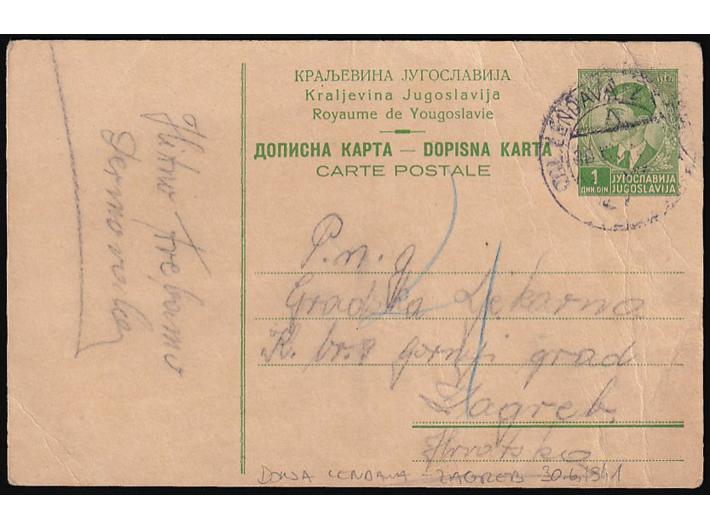 КРАЉЕВИНА ЈУГОСЛАВИЈА
Kraljevina Jugoslavija
Royaume de Yougoslavie
ДОПИСНА КАРТА — DOPISNA KARTA
CARTE POSTALE
1
ДИН. DIN
ЈУГОСЛАВИЈА
JUGOSLAVIJA
LENDAVA
P. n. g
Gradska Ljekarna
K. br. 9 gornji grad
Zagreb
Hrvatska
Hitno trebamo
DONJA LENDAVA - ZAGREB 30.6.1941